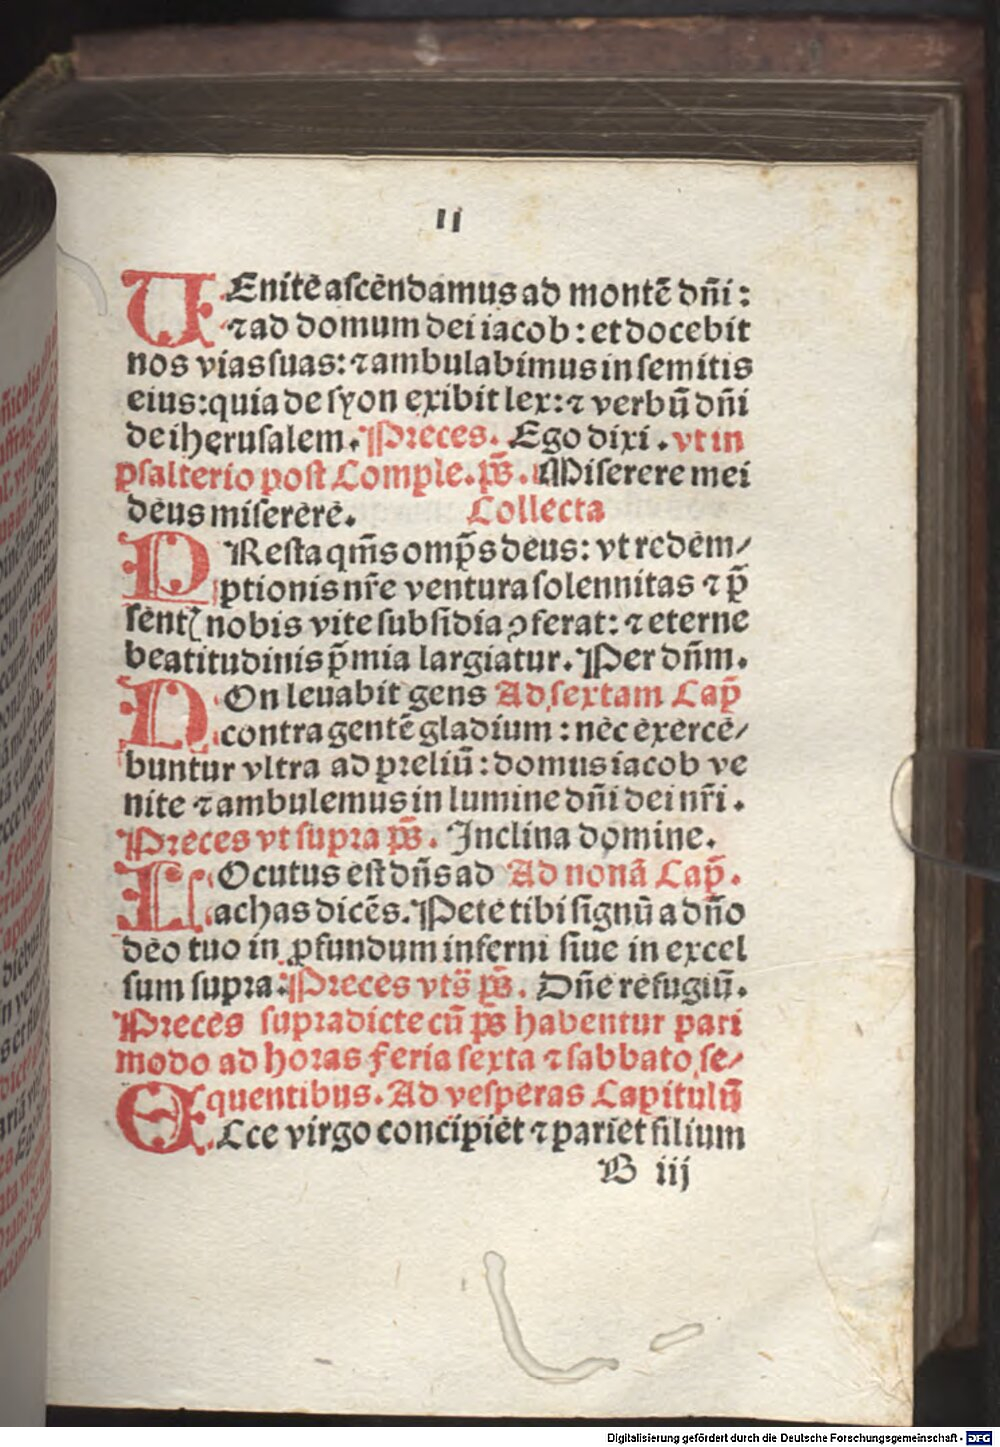 II
VEnite ascēndamus ad montē dn̄i:
⁊ ad domum dei iacob: et docebit
nos vias suas: ⁊ ambulabimus in semitis
eius: quia de syon exibit lex: ⁊ verbū dn̄i
de iherusalem. Preces. Ego dixi. vt in
psalterio post Comple. ps̄. Miserere mei
deus miserere. Collecta
PResta qm̄s omp̄s deus: vt redem/
ptionis nr̄e ventura solennitas ⁊ p̄
sentꝭ nobis vite subsidia ꝯferat: ⁊ eterne
beatitudinis p̄mia largiatur. Per dn̄m.
NOn leuabit gens Ad sextam Cap̄
contra gentē gladium: nec exerce/
buntur vltra ad preliū: domus iacob ve
nite ⁊ ambulemus in lumine dn̄i dei nr̄i.
Preces vt supra ps̄. Inclina domine.
LOcutus est dn̄s ad Ad nonā Cap̄.
achas dicēs. Pete tibi signū a dn̄o
deo tuo in ꝓfundum inferni siue in excel
sum supra: Preces vts̄ ps̄. Dn̄e refugiū.
Preces supradicte cū ps̄ habentur pari
modo ad horas feria sexta ⁊ sabbato se/
quentibus. Ad vesperas Capitulū
ECce virgo concipiet ⁊ pariet filium
B iij
Digitalisierung gefördert durch die Deutsche Forschungsgemeinschaft - DFG